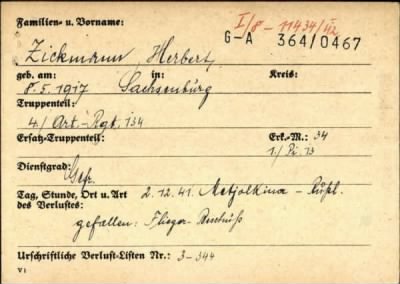 Familien- u. Vorname:
I/8 - 11434/III
G-A 364/0467
Zickmann, Herbert,
geb. am: in: Kreis:
8.5.1917 Sachsenburg
Truppenteil:
4./Art.-Rgt. 134
Ersatz-Truppenteil: Erk.-M.: 34
1./Pi. 13
Dienstgrad: Gefr.
Tag, Stunde, Ort u. Art des Verlustes: 2.12.41. - Rußl.
gefallen: Flieger-Beschuß
Urschriftliche Verlust-Listen Nr.: 3-344
V1